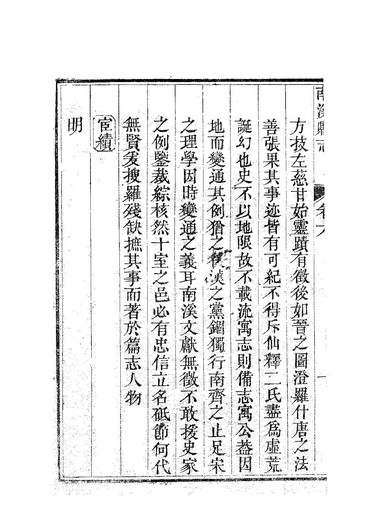 南溪縣志 卷六 一
方技左慈甘始靈蹟有徵後如晉之圖澄羅什唐之法
善張果其事迹皆有可紀不得斥仙釋二氏盡爲虛荒
誕幻也史不以地限故不載流寓志則備志寓公蓋因
地而變通其例猶之後漢之黨錮獨行南齊之止足宋
之理學因時變通之義耳南溪文獻無徵不敢援史家
之例鑒裁綜核然十室之邑必有忠信立名砥節何代
無賢爰搜羅殘缺摭其事而著於篇志人物
宦績
明